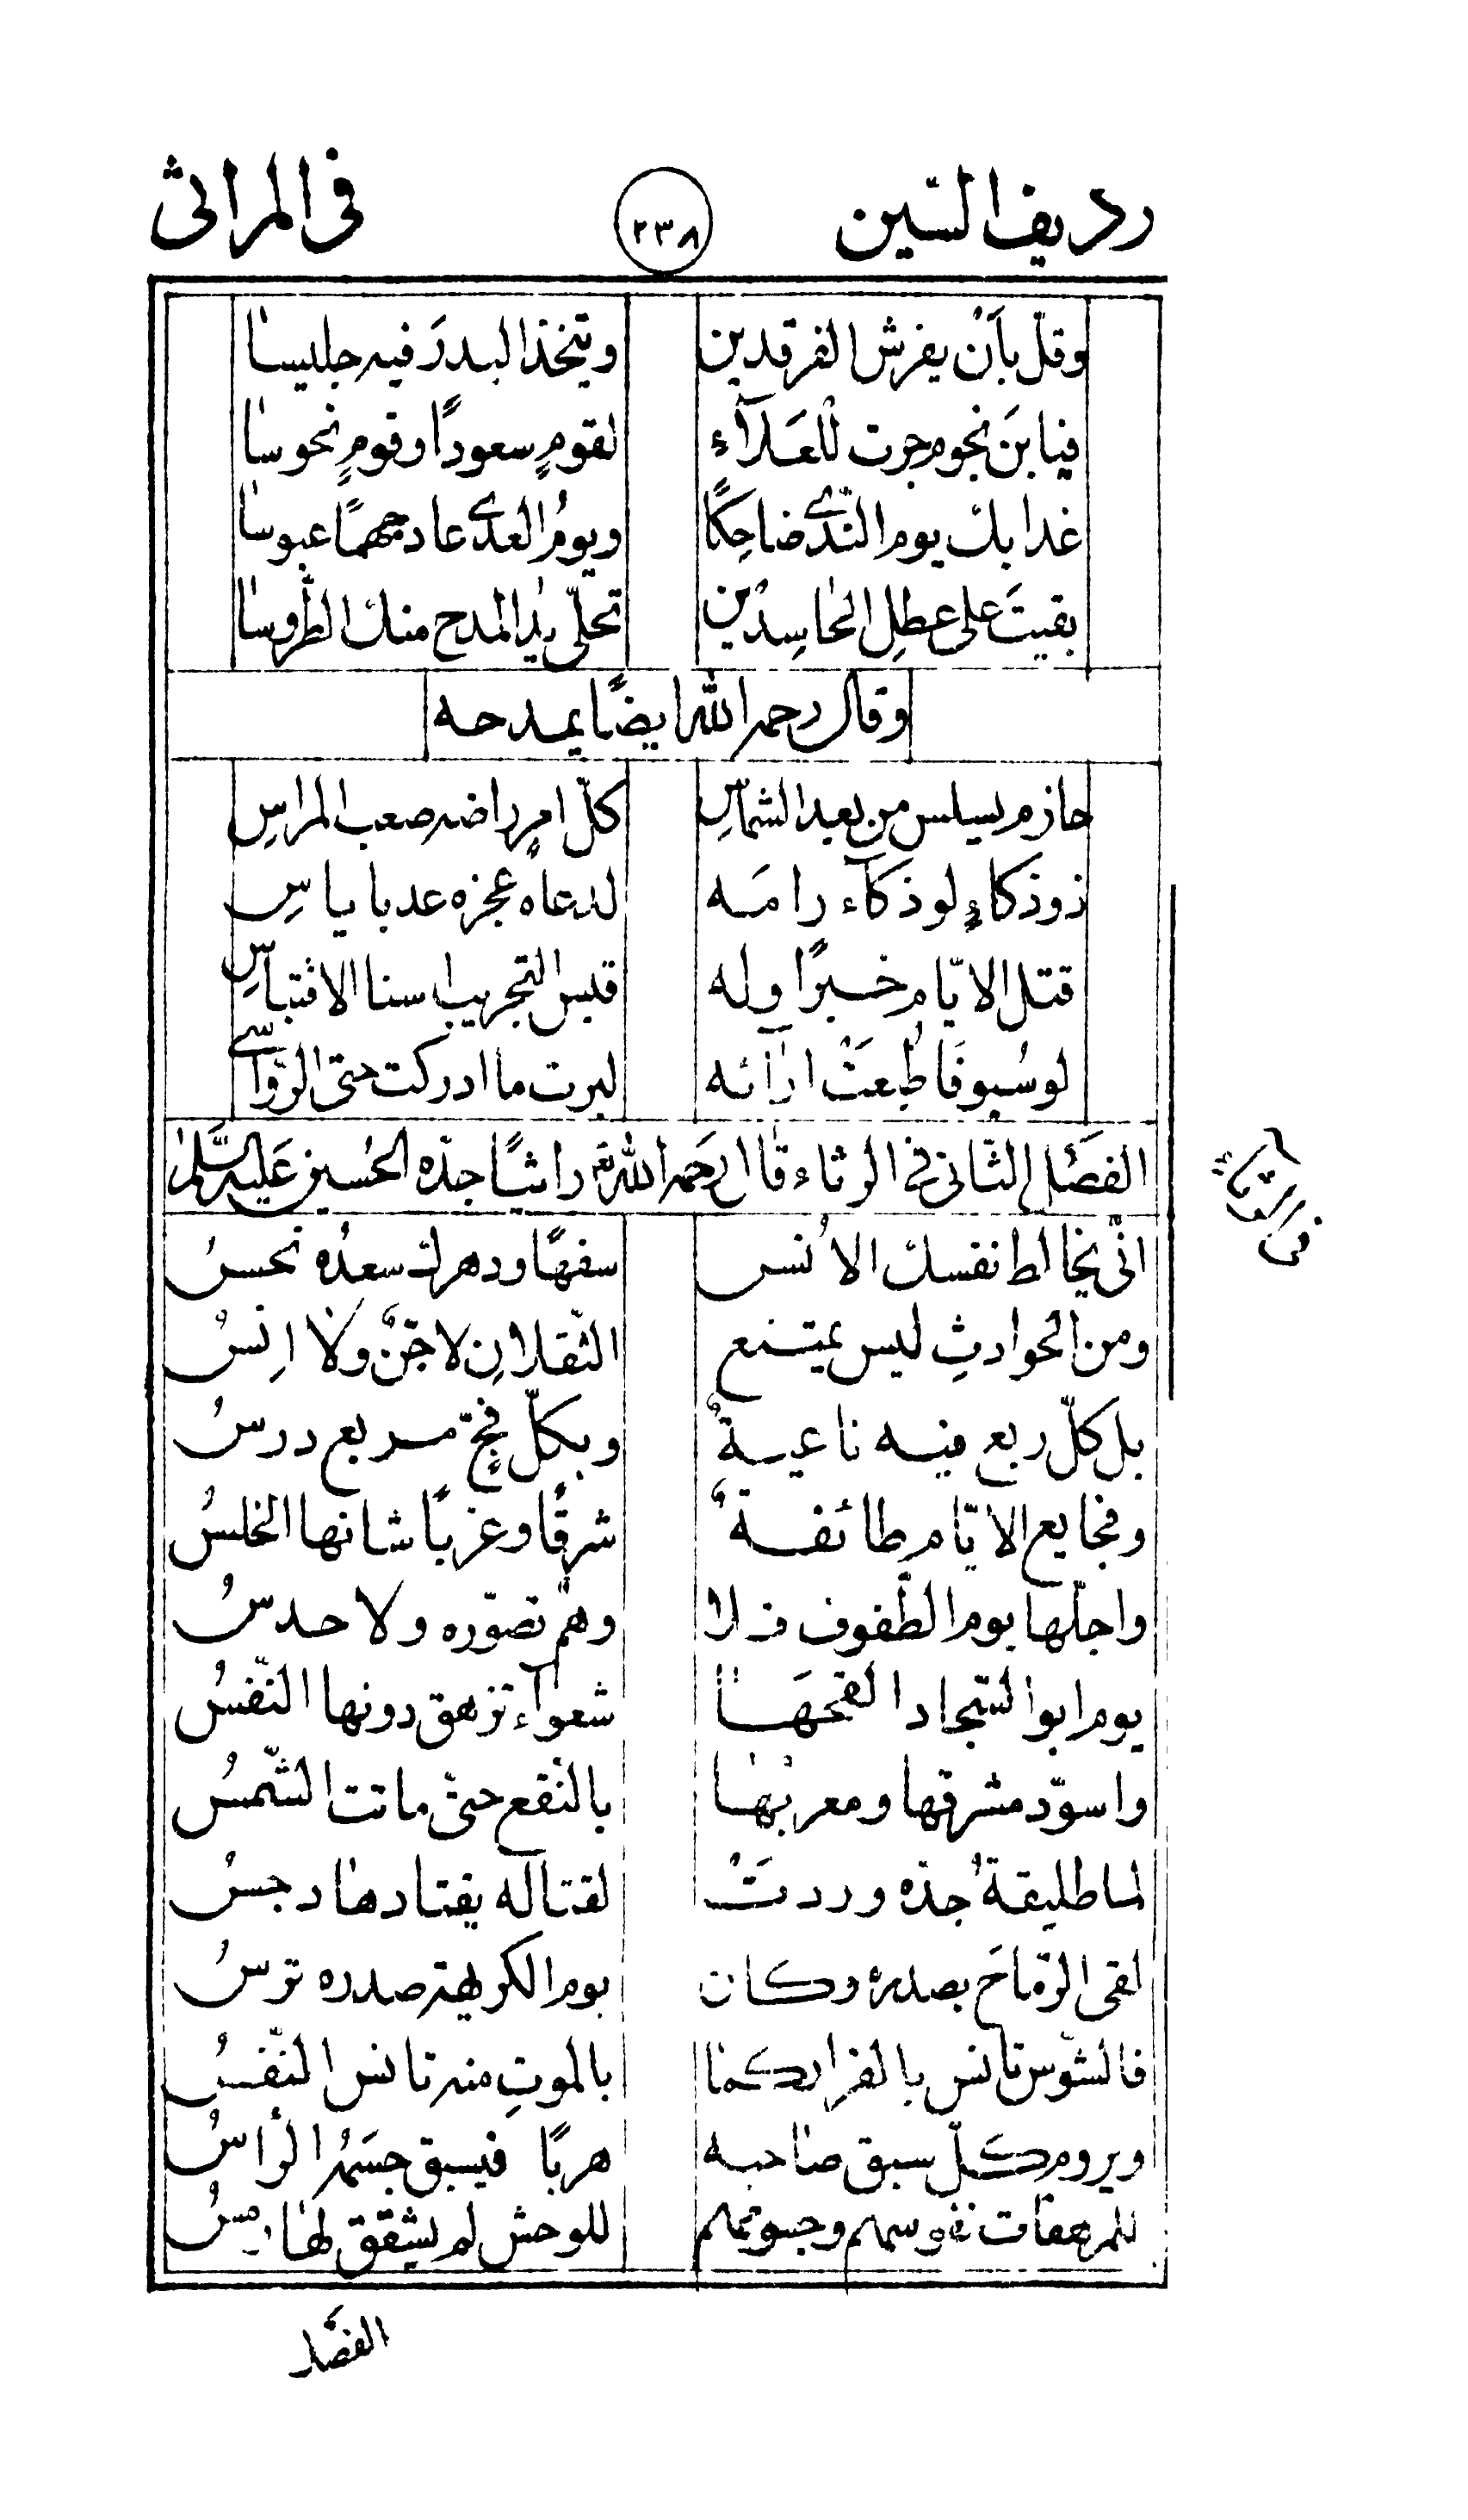 رديف السّين ٢٣٨ فى المراثى
وقلّ بأنْ يفرش الفرقدين ويتخذ البدرَ فيه جليسا
فيا بنَ نجوم جرت للْعَلآء لقومٍ سعودًا وقومٍ نحوسا
غدا بك يوم النّدى ضاحِكًا ويومُ العدى عاد جهمًا عبوسا
بقيتَ على عطلِ الحاسِدِين تحلّى يد المدح منك الطّروسا
وقال رحمه الله ايضًا يمدحه
حازم يسلس من بعد الشماسِ كلّ امرٍ راضه صعب المراسِ
ذو ذكاءٍ لو ذكآء رامَه لدعاه عجزه عد باياسِ
قتل الايّام خبرًا وله قبس التجريب اسنا الاقتباسِ
لو سيوفًا طُبعَتْ ارآئه لبرت ما ادركت حتى الرّواسى
الفصَل الثانى فى الرثاء قال رَحمه الله راثيًا جدّه الحُسين عَليه السَّلام
فى الرثاء
انّى يخالط نفسك الاُنس سفهًا ودهرك سعدُه نحسُ
ومن الحوادثِ ليس يمتنع الثّقلانِ لا جنٌّ ولا اِنسُ
بل كلّ ربع فيه ناعيةٌ وبكلّ فجٍّ مربع درسُ
وفجايع الايّام طائفةٌ شرقًا وغربًا شانها الخلسُ
واجلّها يوم الطّفوف فلا وهمٌ تصوّره ولا حدسُ
يوم ابو السّجاد القحهَا شعوآء تزهق دونها النّفسُ
واسودّ مشرقها ومغربُها بالنّقع حتىّ ماتت الشّمسُ
لما طليقةُ جدّه وردتْ لقتاله يقتادها رجسُ
لقى الرّماحَ بصدره وكان يوم الكريهة صدره ترسُ
فالشّوس تانس بالفرار كما بالموتِ منه تانس النّفسُ
ويروم كلّ سبق صاحبه هربًا فيسبق جسمَهُ الرّأسُ
للمرهفات نفوسهم وجسومهم للوحش لم يشقق لها رمسُ
الفصَل